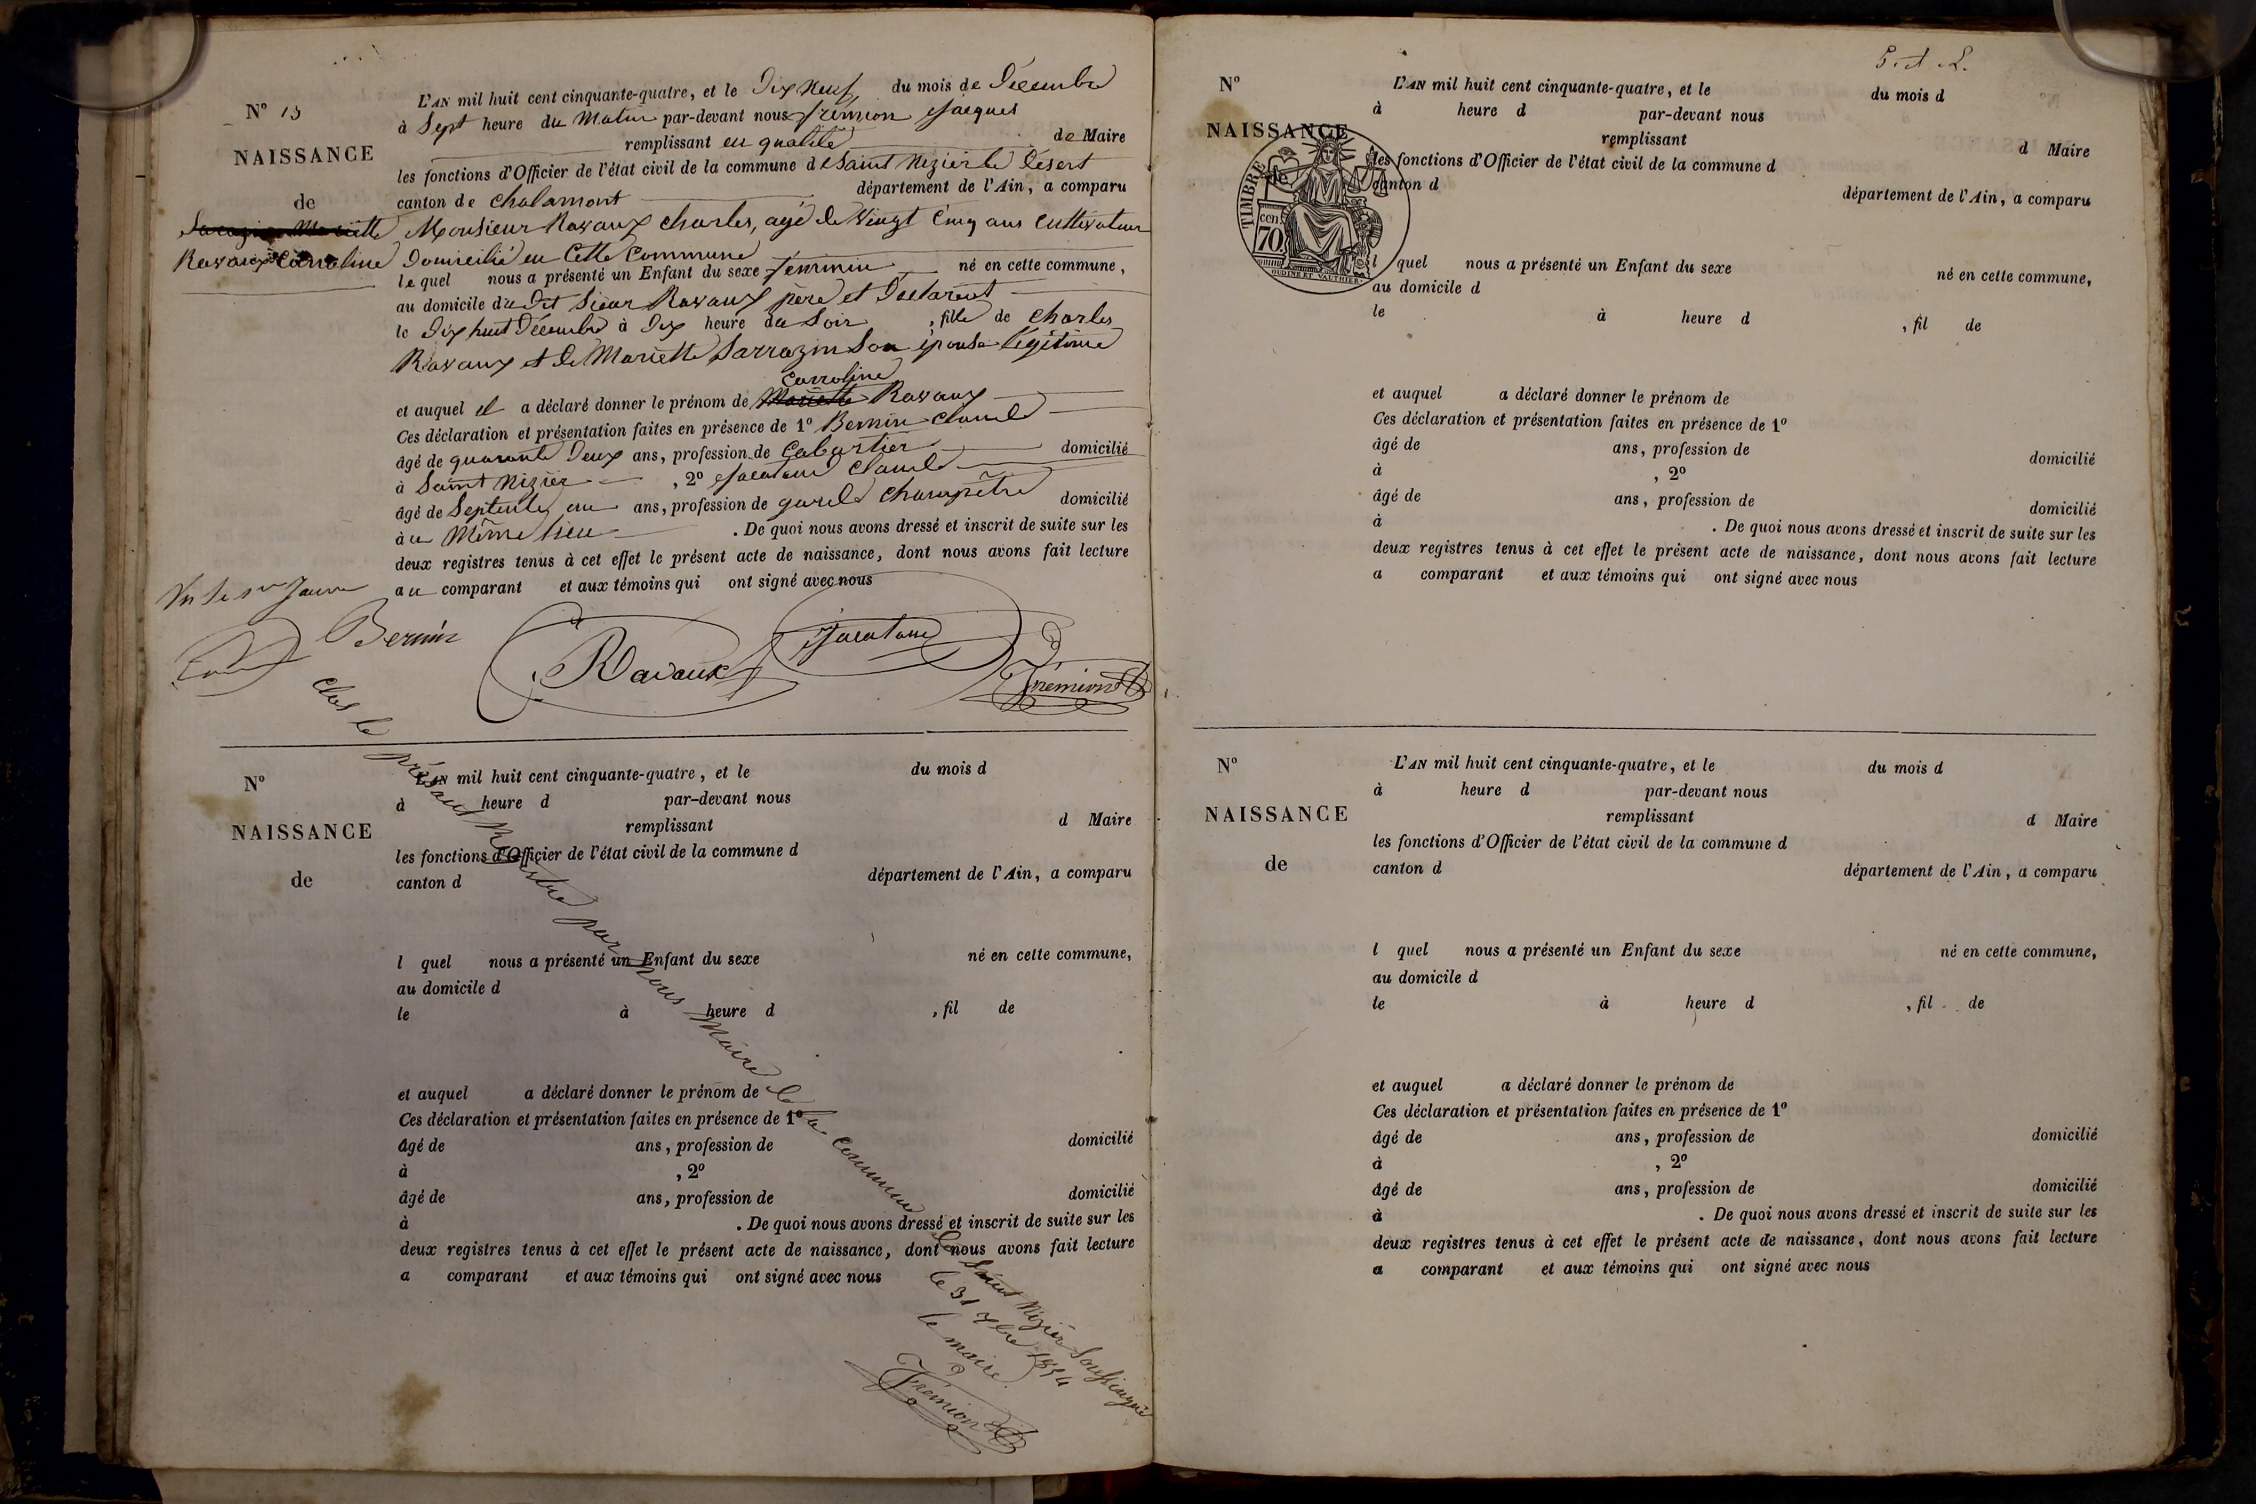 N° 15
NAISSANCE
de
Sarrazin Mariette
Ravaux Carroline
L'AN mil huit cent cinquante-quatre, et le Dix Neuf du mois de Décembre
à Sept heure du Matin par-devant nous Frémion Jacques
remplissant en qualité de Maire
les fonctions d'Officier de l'état civil de la commune de Saint Nizier le Désert
canton de Chalamont département de l'Ain, a comparu
Monsieur Ravaux Charles, agé de Vingt Cinq ans Cultivateur
Domicilié en Cette Commune
lequel nous a présenté un Enfant du sexe femmin né en cette commune,
au domicile du Dit Sieur Ravaux père et Declarent
le Dix huit Décembre à Dix heure du Soir, fille de Charles
Ravaux et de Mariette Sarrazin Son épouse légitime
Carroline
et auquel il a déclaré donner le prénom de Mariette Ravaux
Ces déclaration et présentation faites en présence de 1° Bernin Claude
âgé de quarante Deux ans, profession de Cabartier domicilié
à Saint Nizier, 2° Jacatane Claude
âgé de Septente un ans, profession de garde champêtre domicilié
à u Même lieu. De quoi nous avons dressé et inscrit de suite sur les
deux registres tenus à cet effet le présent acte de naissance, dont nous avons fait lecture
au comparant et aux témoins qui ont signé avec nous
Bernin
Ravaux
Frémion
Clos le présent Registre par nous Maire de la commune de Saint Nizier
le 31 Xbre 1854
le maire
Frémion
N°
NAISSANCE
de
L'AN mil huit cent cinquante-quatre, et le du mois d
à heure d par-devant nous
remplissant d Maire
les fonctions d'Officier de l'état civil de la commune d
canton d département de l'Ain, a comparu
l quel nous a présenté un Enfant du sexe né en cette commune,
au domicile d
le à heure d , fil de
et auquel a déclaré donner le prénom de
Ces déclaration et présentation faites en présence de 1°
âgé de ans, profession de domicilié
à , 2°
âgé de ans, profession de domicilié
à . De quoi nous avons dressé et inscrit de suite sur les
deux registres tenus à cet effet le présent acte de naissance, dont nous avons fait lecture
a comparant et aux témoins qui ont signé avec nous
N°
NAISSANCE
de
TIMBRE
70 cen
OUDINE ET VAUTHIER
L'AN mil huit cent cinquante-quatre, et le du mois d
à heure d par-devant nous
remplissant d Maire
les fonctions d'Officier de l'état civil de la commune d
canton d département de l'Ain, a comparu
l quel nous a présenté un Enfant du sexe né en cette commune,
au domicile d
le à heure d , fil de
et auquel a déclaré donner le prénom de
Ces déclaration et présentation faites en présence de 1°
âgé de ans, profession de domicilié
à , 2°
âgé de ans, profession de domicilié
à . De quoi nous avons dressé et inscrit de suite sur les
deux registres tenus à cet effet le présent acte de naissance, dont nous avons fait lecture
a comparant et aux témoins qui ont signé avec nous
N°
NAISSANCE
de
L'AN mil huit cent cinquante-quatre, et le du mois d
à heure d par-devant nous
remplissant d Maire
les fonctions d'Officier de l'état civil de la commune d
canton d département de l'Ain, a comparu
l quel nous a présenté un Enfant du sexe né en cette commune,
au domicile d
le à heure d , fil de
et auquel a déclaré donner le prénom de
Ces déclaration et présentation faites en présence de 1°
âgé de ans, profession de domicilié
à , 2°
âgé de ans, profession de domicilié
à . De quoi nous avons dressé et inscrit de suite sur les
deux registres tenus à cet effet le présent acte de naissance, dont nous avons fait lecture
a comparant et aux témoins qui ont signé avec nous